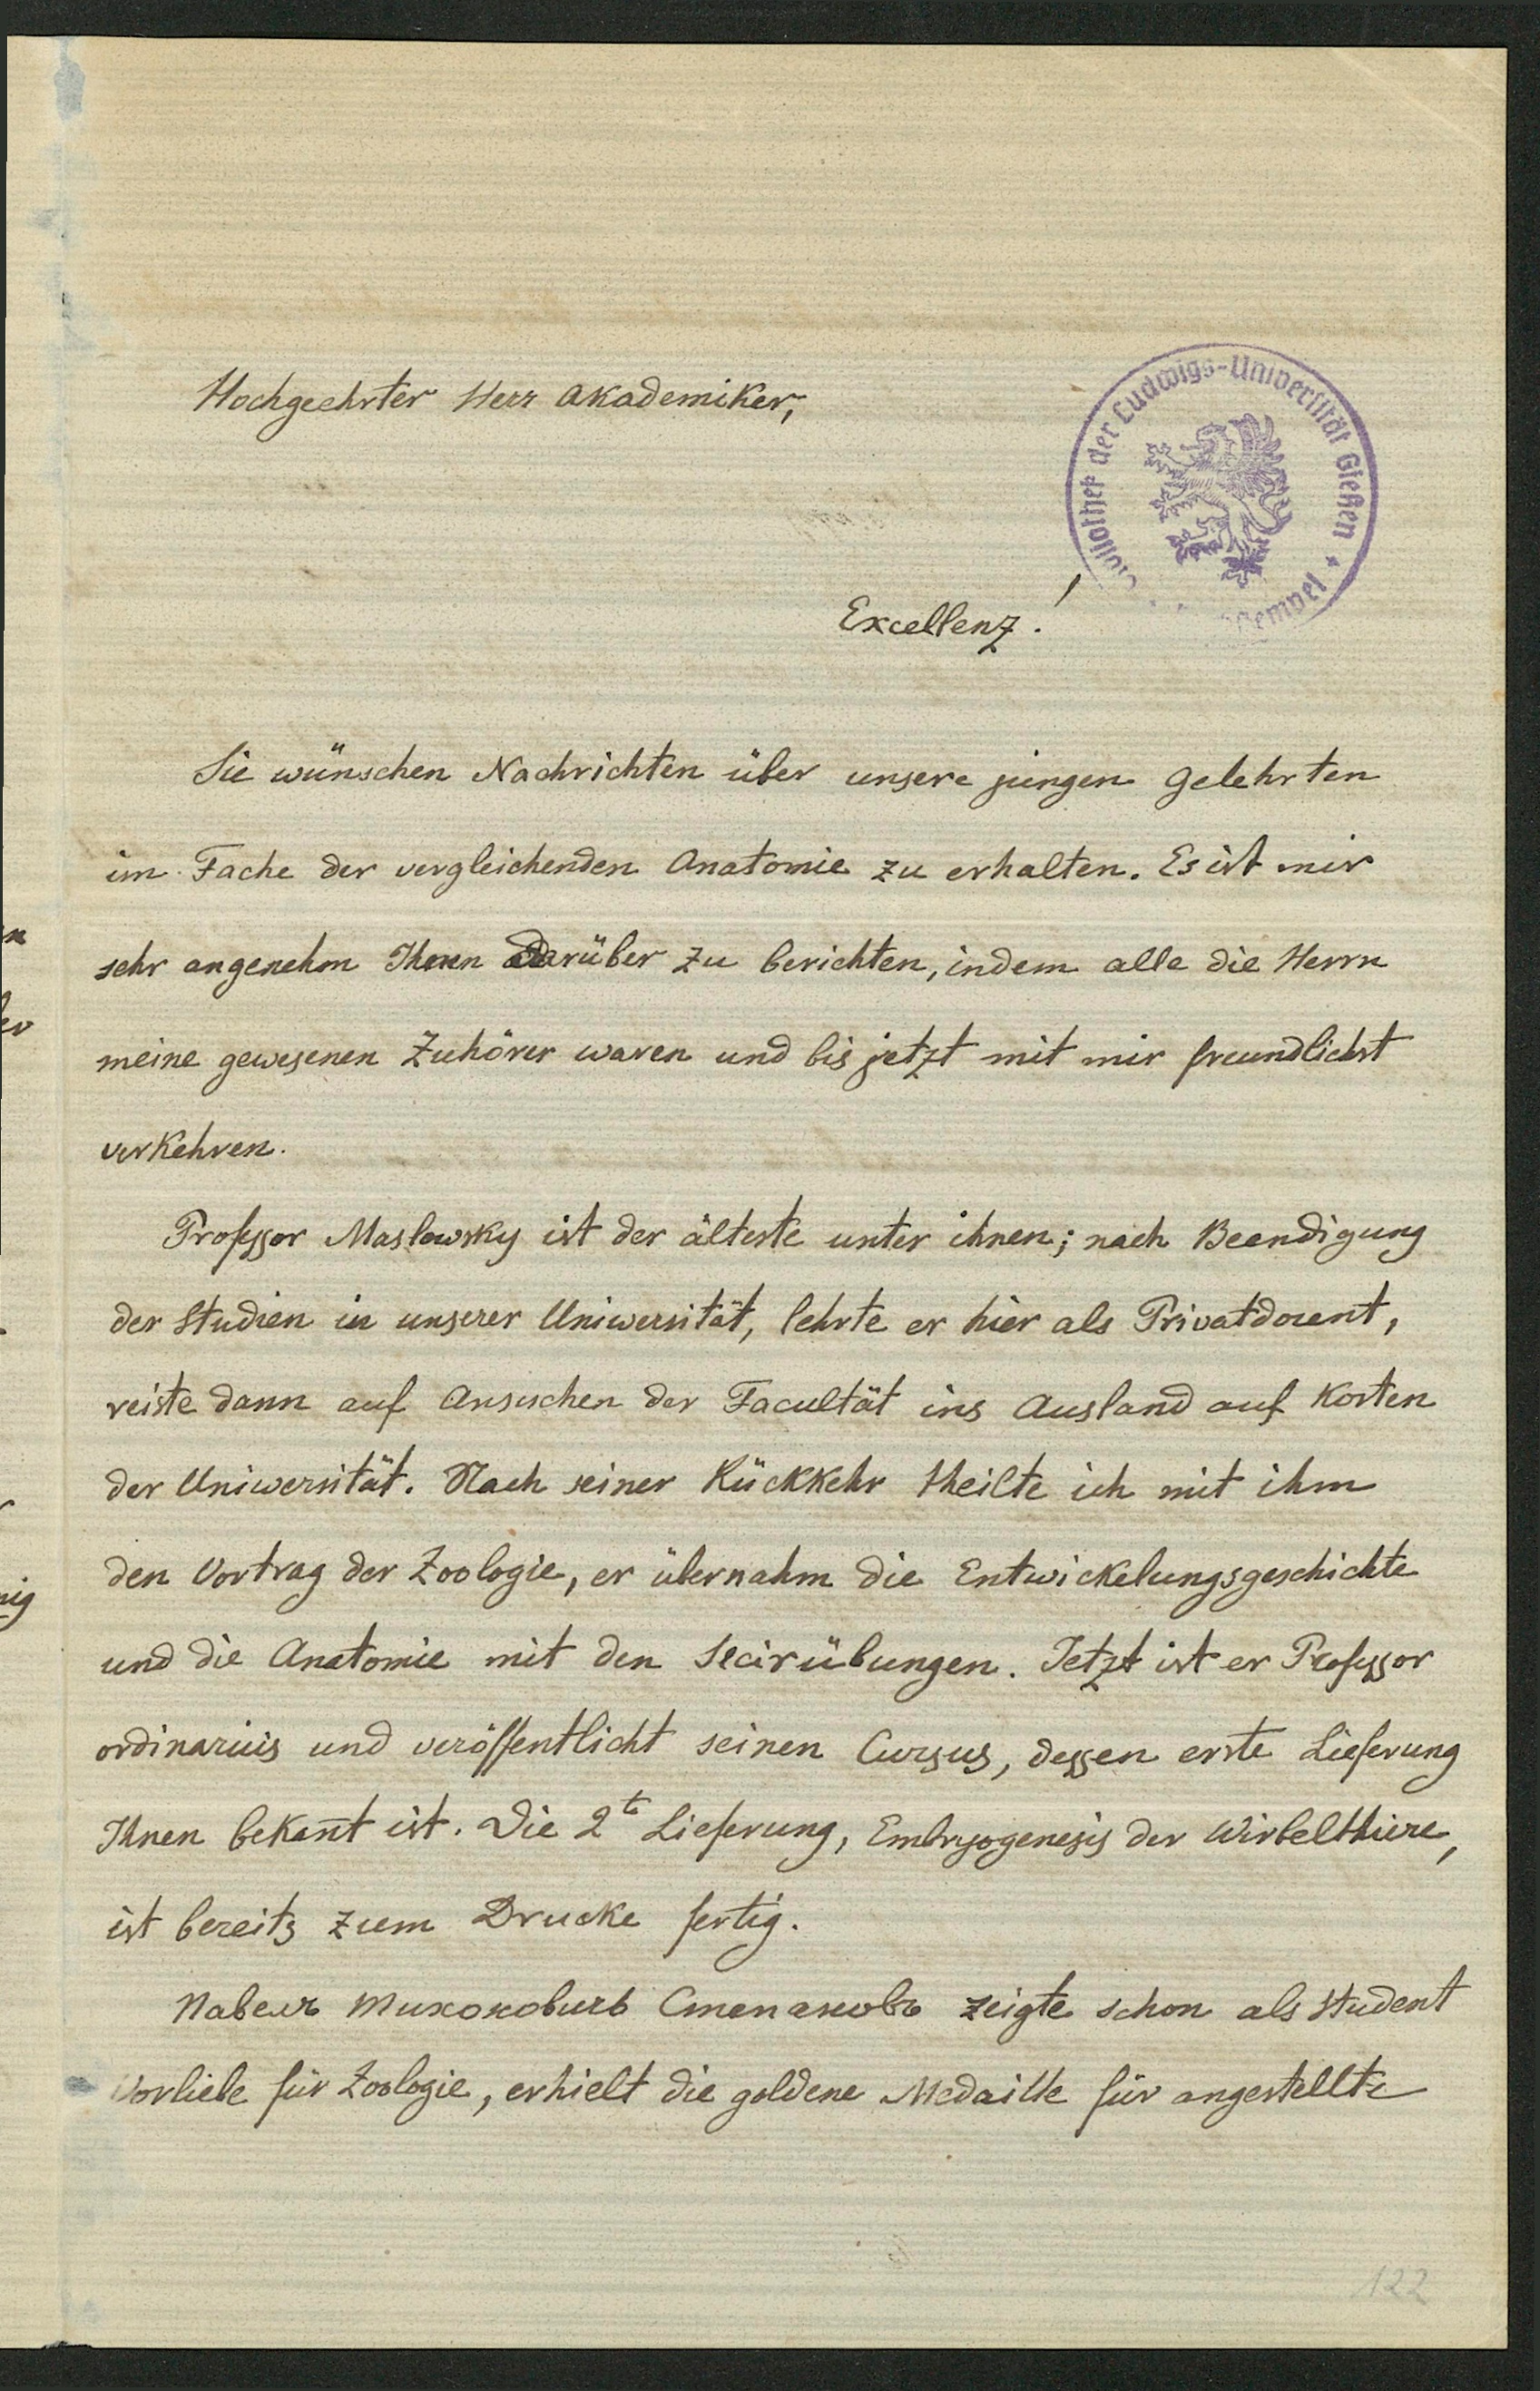 Hochgeehrter Herr Akademiker,
Bibliothek der Ludwigs-Universität Gießen
Excellenz!
Sie wünschen Nachrichten über unsere jungen Gelehrten
im Fache der vergleichenden Anatomie zu erhalten. Es ist mir
sehr angenehm Ihnen darüber zu berichten, indem alle die Herrn
meine gewesenen Zuhörer waren und bis jetzt mit mir freundlichst
verkehren.
Professor Maslowsky ist der älteste unter ihnen; nach Beendigung
der Studien in unserer Uniwersität, lehrte er hier als Privatdocent,
reiste dann auf Ansuchen der Facultät ins Ausland auf Kosten
der Uniwersität. Nach seiner Rückkehr theilte ich mit ihm
den Vortrag der Zoologie, er übernahm die Entwickelungsgeschichte
und die Anatomie mit den Secirübungen. Jetzt ist er Professor
ordinarius und veröffentlicht seinen Cursus, dessen erste Lieferung
Ihnen bekan̄t ist. Die 2te Lieferung, Embryogenesis der Wirbelthiere,
ist bereits zum Drucke fertig.
Павелъ Тихоновичъ Степановъ zeigte schon als Student
Vorliebe für Zoologie, erhielt die goldene Medaille für angestellte
122